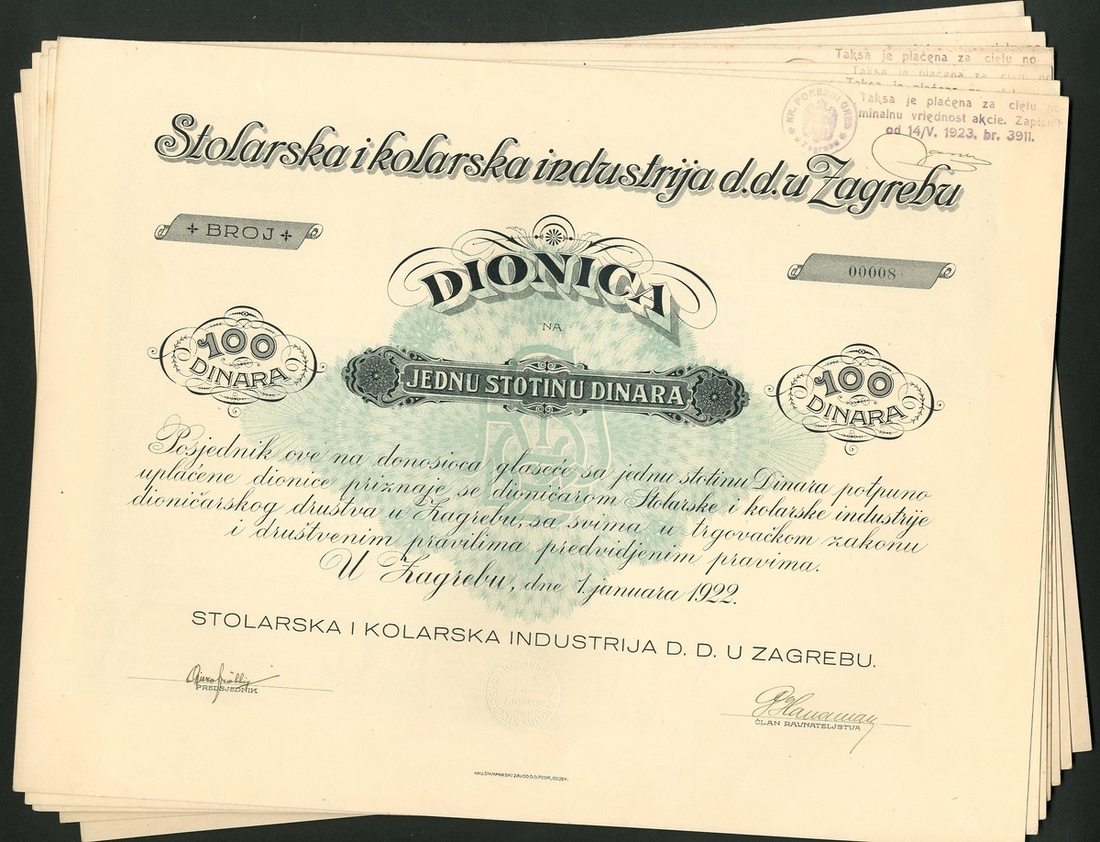 Taksa je plaćena za cielu no-
Taksa je plaćena za
Taksa je plaćena za cielu
minalnu vriednost akcie.
od 14/V. 1923. br. 3911.
KR. POREZNI URED
u Zagrebu
Stolarska i kolarska industrija d.d. u Zagrebu
+ BROJ +
00008
DIONICA
NA
100
DINARA
JEDNU STOTINU DINARA
100
DINARA
Posjednik ove na donosioca glaseće sa jednu stotinu Dinara potpuno
uplaćene dionice priznaje se dioničarom Stolarske i kolarske industrije
dioničarskog društva u Zagrebu, sa svima u trgovačkom zakonu
i društvenim pravilima predvidjenim pravima.
U Zagrebu, dne 1. januara 1922.
STOLARSKA I KOLARSKA INDUSTRIJA D. D. U ZAGREBU.
PREDSJEDNIK
ČLAN RAVNATELJSTVA